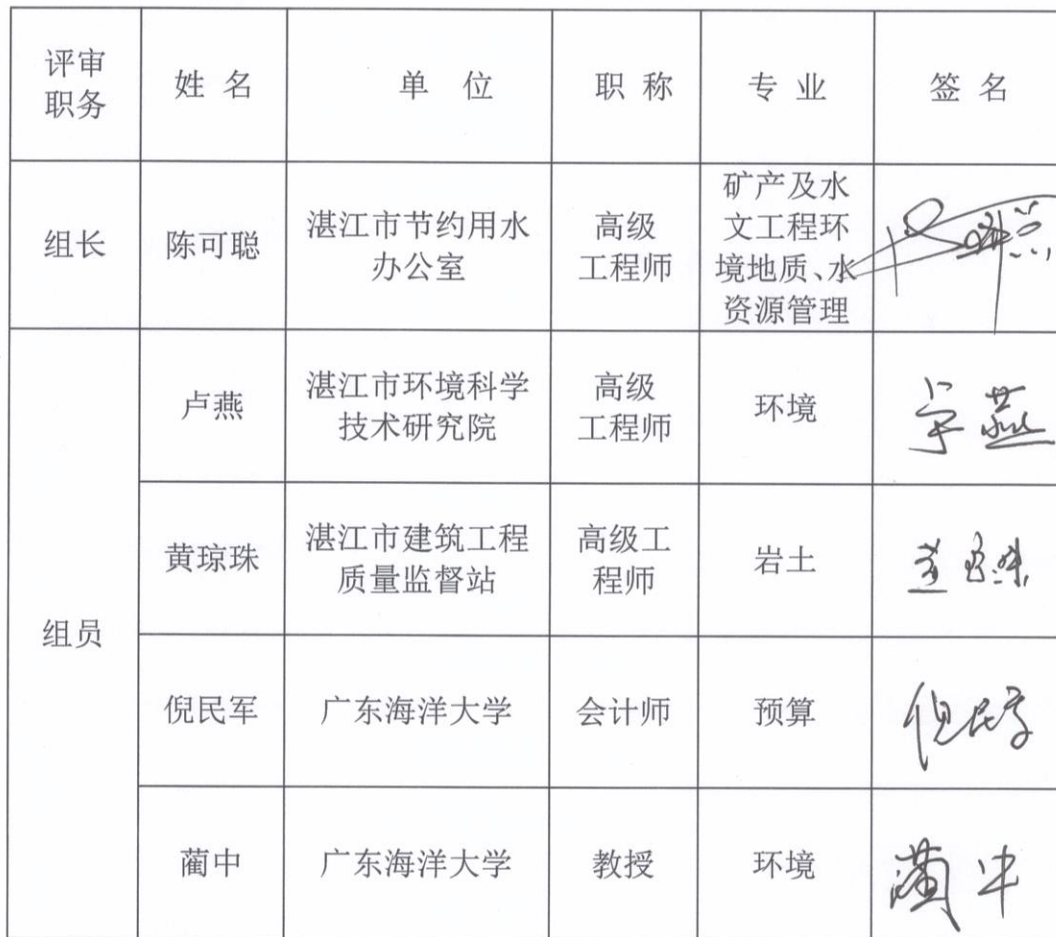 评审
职务
姓 名
单 位
职 称
专 业
签 名
组长
陈可聪
湛江市节约用水
办公室
高级
工程师
矿产及水
文工程环
境地质、水
资源管理
组员
卢燕
湛江市环境科学
技术研究院
高级
工程师
环境
黄琼珠
湛江市建筑工程
质量监督站
高级工
程师
岩土
倪民军
广东海洋大学
会计师
预算
倪民军
蔺中
广东海洋大学
教授
环境
蔺中